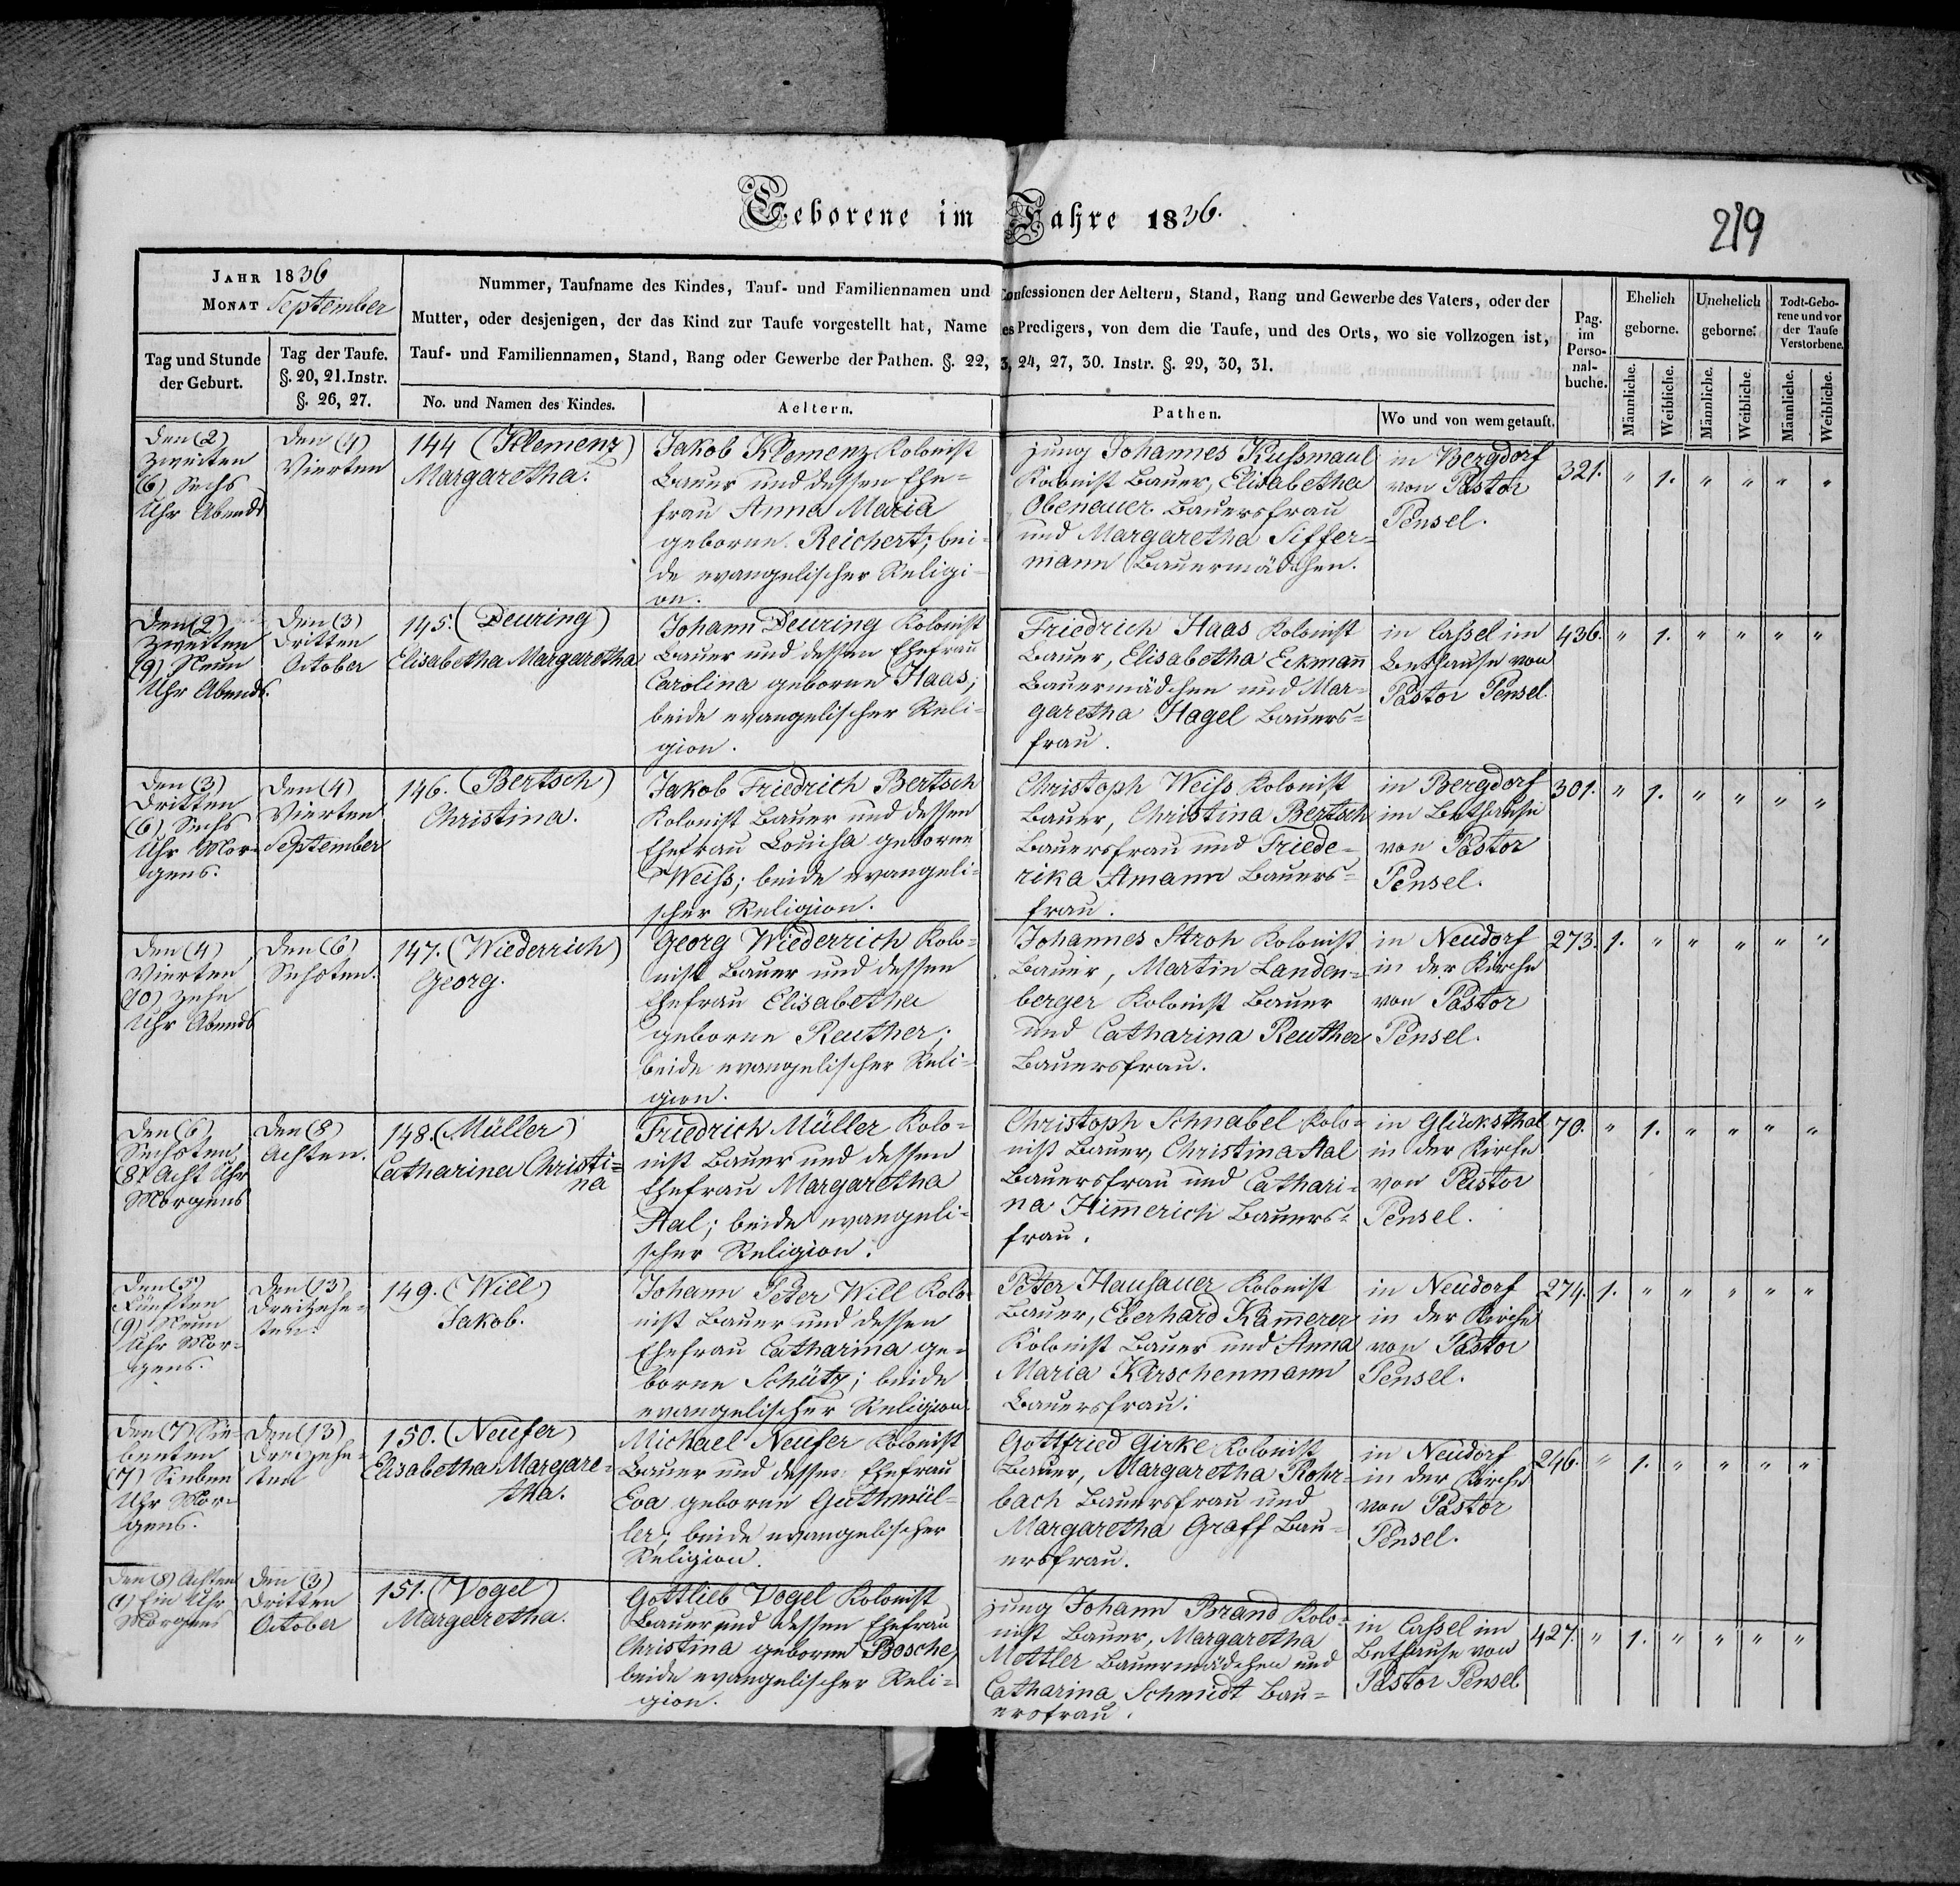 Geborene im Jahre 1836.
219
JAHR 1836
MONAT September
Tag und Stunde
der Geburt.
Tag der Taufe.
§. 20, 21. Instr.
§. 26, 27.
Nummer, Taufname des Kindes, Tauf- und Familiennamen und Confessionen der Aeltern, Stand, Rang und Gewerbe des Vaters, oder der
Mutter, oder desjenigen, der das Kind zur Taufe vorgestellt hat, Name des Predigers, von dem die Taufe, und des Orts, wo sie vollzogen ist,
Tauf- und Familiennamen, Stand, Rang oder Gewerbe der Pathen. §. 22, 3, 24, 27, 30. Instr. §. 29, 30, 31.
No. und Namen des Kindes.
Aeltern.
Pathen.
Wo und von wem getauft.
Pag.
im
Perso-
nal-
buche.
Ehelich
geborne.
Unehelich
geborne.
Todt-Gebo-
rene und vor
der Taufe
Verstorbene.
Männliche.
Weibliche.
Männliche.
Weibliche.
Männliche.
Weibliche.
Den (2)
Zweiten
(6) Sechs
Uhr Abends
Den (4)
Vierten
144 (Klemenz)
Margaretha.
Jakob Klemenz Kolonist
Bauer und dessen Ehe-
frau Anna Maria
geborne Reichert; bei-
de evangelischer Religi-
on.
jung Johannes Kußmaul
Kolonist Bauer, Elisabetha
Obenauer Bauersfrau
und Margaretha Siffer-
mann Bauermädchen.
in Bergdorf
von Pastor
Pensel.
321. " 1. " " " "
Den (2)
Zweiten
(9) Neun
Uhr Abends.
Den (3)
Dritten
October
145. (Deuring)
Elisabetha Margaretha
Johann Deuring Kolonist
Bauer und dessen Ehefrau
Carolina geborne Haas;
beide evangelischer Reli-
gion.
Friedrich Haas Kolonist
Bauer, Elisabetha Eckmañ
Bauermädchen und Mar-
garetha Hagel Bauers-
frau.
in Cassel im
Bethause von
Pastor Pensel
436. " 1. " " " "
Den (3)
Dritten
(6) Sechs
Uhr Mor-
gens.
Den (4)
Vierten
September
146. (Bertsch)
Christina.
Jakob Friedrich Bertsch
Kolonist Bauer und dessen
Ehefrau Louisa geborne
Weiß; beide evangeli-
scher Religion.
Christoph Weiß Kolonist
Bauer, Christina Bertsch
Bauersfrau und Friede-
rika Amann Bauers-
frau.
in Bergdorf
im Bethause
von Pastor
Pensel.
301. " 1. " " " "
Den (4)
Vierten
(10) Zehn
Uhr Abends
Den (6)
Sechsten.
147. (Wiederrich)
Georg.
Georg Wiederrich Kolo-
nist Bauer und dessen
Ehefrau Elisabetha
geborne Reuther;
beide evangelischer Reli-
gion.
Johannes Stroh Kolonist
Bauer, Martin Landen-
berger Kolonist Bauer
und Catharina Reuther
Bauersfrau.
in Neudorf
in der Kirche
von Pastor
Pensel.
273. 1. " " " " "
Den (6)
Sechsten
(8) Acht Uhr
Morgens
Den (8)
Achten.
148. (Müller)
Catharina Christi-
na
Friedrich Müller Kolo-
nist Bauer und dessen
Ehefrau Margaretha
Aal; beide evangeli-
scher Religion.
Christoph Schnabel Kolo-
nist Bauer, Christina Aal
Bauersfrau und Cathari-
na Him̄erich Bauers-
frau.
in Glücksthal
in der Kirche
von Pastor
Pensel.
70. " 1. " " " "
Den (5)
Fünften
(9) Neun
Uhr Mor-
gens.
Den (13)
Dreizehn-
ten.
149. (Will)
Jakob.
Johann Peter Will Kolo-
nist Bauer und dessen
Ehefrau Catharina ge-
borne Schütz; beide
evangelischer Religion.
Peter Hausauer Kolonist
Bauer, Eberhard Kam̄erer
Kolonist Bauer und Anna
Maria Kirschenmann
Bauersfrau.
in Neudorf
in der Kirche
von Pastor
Pensel.
274. 1. " " " " "
Den (7) Sie-
benten
(7) Sieben
Uhr Mor-
gens.
Den (13)
Dreizehn-
ten
150. (Neufer)
Elisabetha Margare-
tha.
Michael Neufer Kolonist
Bauer und dessen Ehefrau
Eva geborne Guthmül-
ler; beide evangelischer
Religion.
Gottfried Girke Kolonist
Bauer, Margaretha Rohr-
bach Bauersfrau und
Margaretha Graff Bau-
ersfrau.
in Neudorf
in der Kirche
von Pastor
Pensel.
246. " 1. " " " "
Den (8) Achten
(1) Ein Uhr
Morgens
Den (3)
Dritten
October
151. (Vogel)
Margaretha.
Gottlieb Vogel Kolonist
Bauer und dessen Ehefrau
Christina geborne Bosche,
beide evangelischer Reli-
gion.
jung Johann Brand Kolo-
nist Bauer, Margaretha
Mettler Bauermädchen und
Catharina Schmidt Bau-
ersfrau.
in Cassel im
Bethause von
Pastor Pensel
427. " 1. " " " "